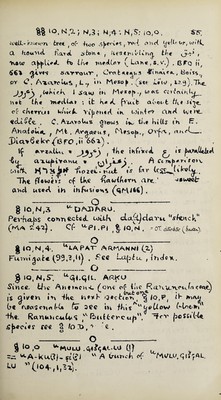 §§ 10, N, 2; N, 3; N, 4; N, 5; 10, O. 55.
well-known tree, of two species, red and yellow, with
a round hard stone, resembling the
now applied to the medlar (Lane, s.v.). BFO ii,
662 gives sarrour, Crataegus Sinaica, Boiss,
or C. Azarolus, L., in Mesop. (see Löw, 1.29). The
which I saw in Mesop, was certainly
not the medlar: it had fruit about the size
of cherries which ripened in winter and were
edible. C. Azarolus grows in the hills in E.
Anatolia, Mt. Argaeus, Mesop, Orfa, and
Diarbekr (BFO, ii 662).
If arzallu = the infixed ع is paralleled
by azupiranu = زعفران. A comparison
with hazel-nut is far less likely.
The flowers of the hawthorn are sweet
and used in infusions (GM, 166).
§ 10, N, 3 "DADARU.
Perhaps connected with da(d)daru "stench"
(MA 242). Cf "PI.PI § 10, N.
§ 10, N, 4. "LAPAT ARMANNI (2)
Fumigate (99,3,11). See Laptu, index.
§ 10, N, 5. "GI.GIL ARKU
Since the Anemone (one of the Ranunculaceae)
is given in the next section, § 10, P, it may
be reasonable to see in this "yellow
the Ranunculus "Buttercup". For possible
species see § 10 D,
§ 10, O "MULU.GIŠGAL.LU (1)
= "A-KU(?)-
"A bunch of "MULU.GIŠGAL
LU" (104,1,32).